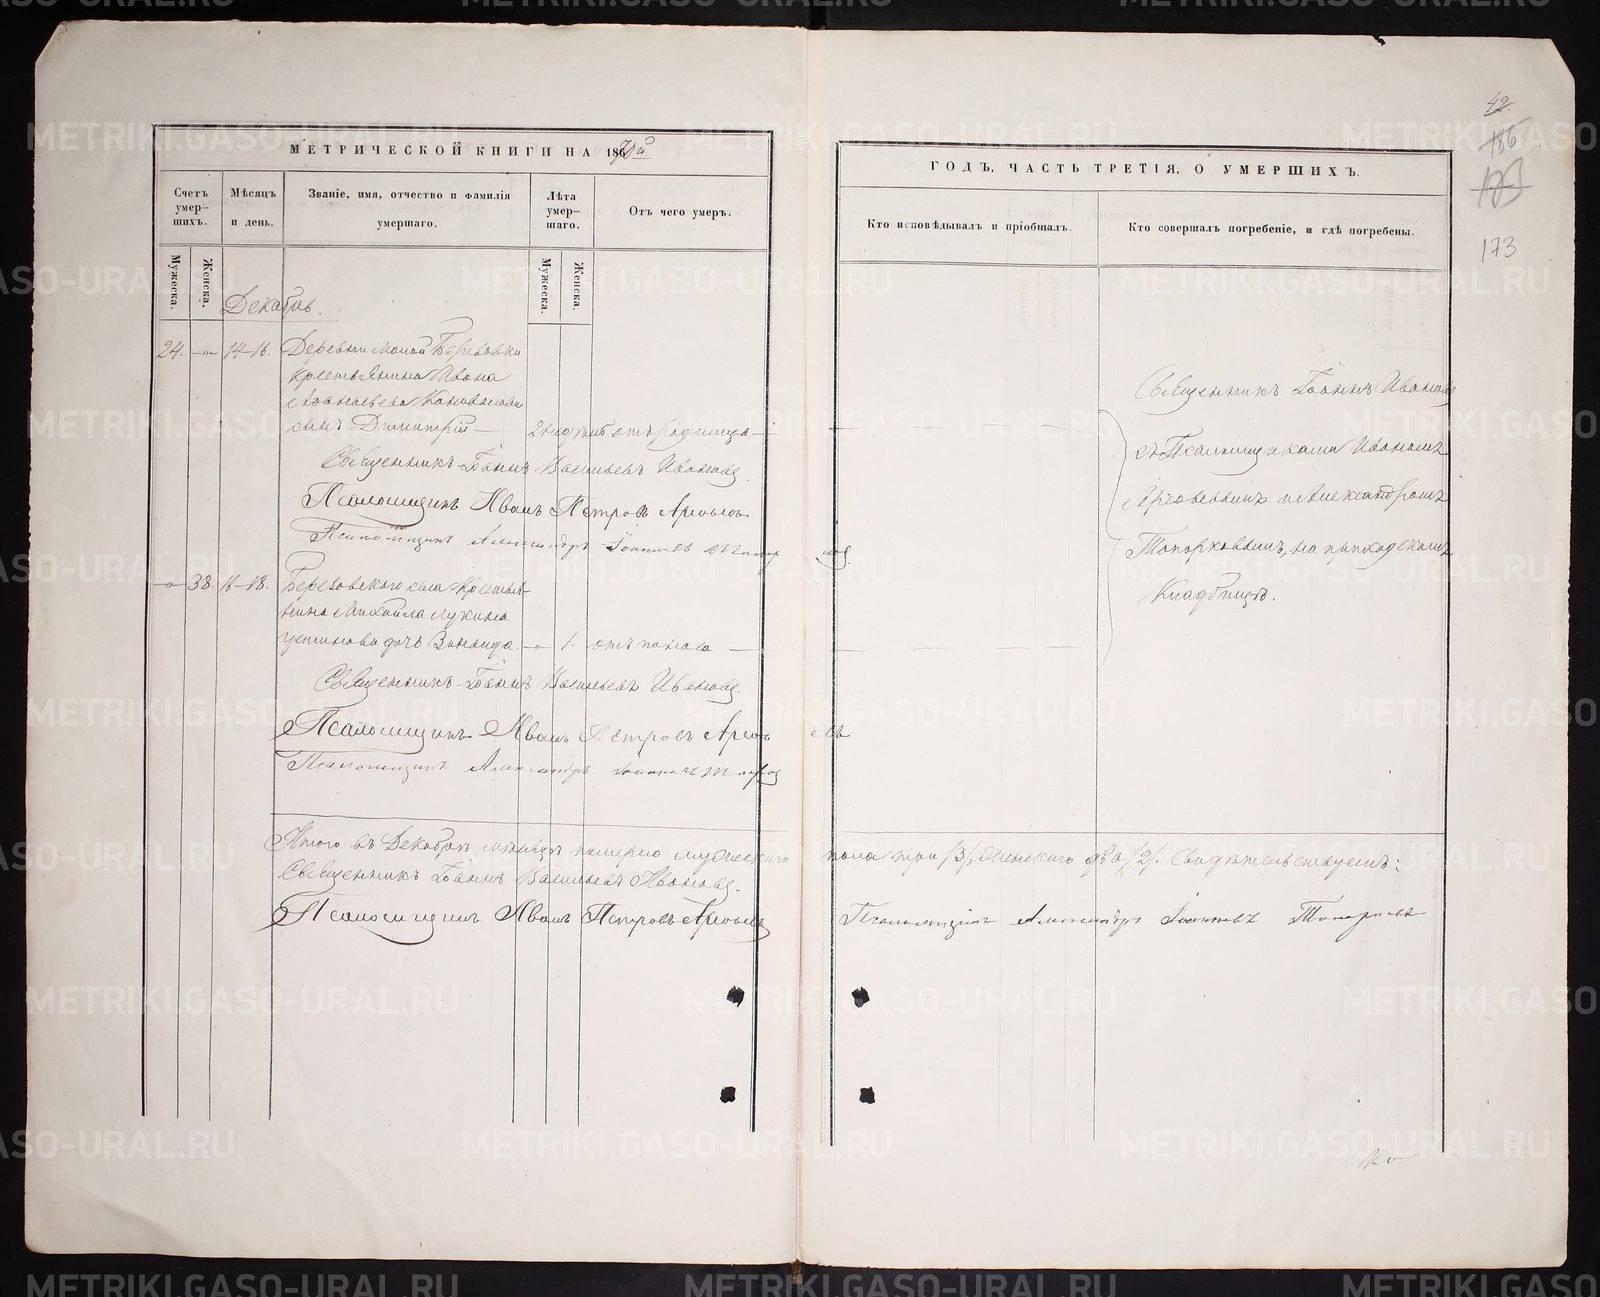 42.
186
173
МЕТРИЧЕСКОЙ КНИГИ НА 1870й
ГОДЪ, ЧАСТЬ ТРЕТІЯ, О УМЕРШИХЪ.
Счетъ умер-шихъ.
Мѣсяцъ и день.
Званіе, имя, отчество и фамилія умершаго.
Лѣта умер-шаго.
Отъ чего умеръ.
Кто исповѣдывалъ и пріобщалъ.
Кто совершалъ погребеніе, и гдѣ погребены.
Мужеска.
Женска.
Мужеска.
Женска.
Декабрь.
24. —„— 14–16. Деревни малой Березовки
крестьянина Ивана
сынъ Димитрій — отъ родимца —
Священникъ Іоаннъ Васильевъ Ивановъ.
Псаломщикъ Иванъ Петровъ Арефьевъ
Псаломщикъ Александръ Іоанновъ Топорковъ
„— 38. 16–18. Березовскаго села крестья-
нина Михаила Лукина
Устинова дочь Зинаида. —„— 1. отъ поноса —
Священникъ Іоаннъ Васильевъ Ивановъ.
Псаломщикъ Иванъ Петровъ Арефьевъ
Псаломщикъ Александръ Іоанновъ Топорковъ
Священникъ Іоаннъ Ивановъ
съ Псаломщиками Иваномъ
Арефьевымъ и Александромъ
Топорковымъ, на приходскомъ
Кладбищѣ.
Итого въ Декабрѣ мѣсяцѣ померло мужескаго пола три /3/, женскаго два /2/. Свидѣтельствуемъ:
Священникъ Іоаннъ Васильевъ Ивановъ.
Псаломщикъ Иванъ Петровъ Арефьевъ Псаломщикъ Александръ Іоанновъ Топорковъ
METRIKI.GASO-URAL.RU